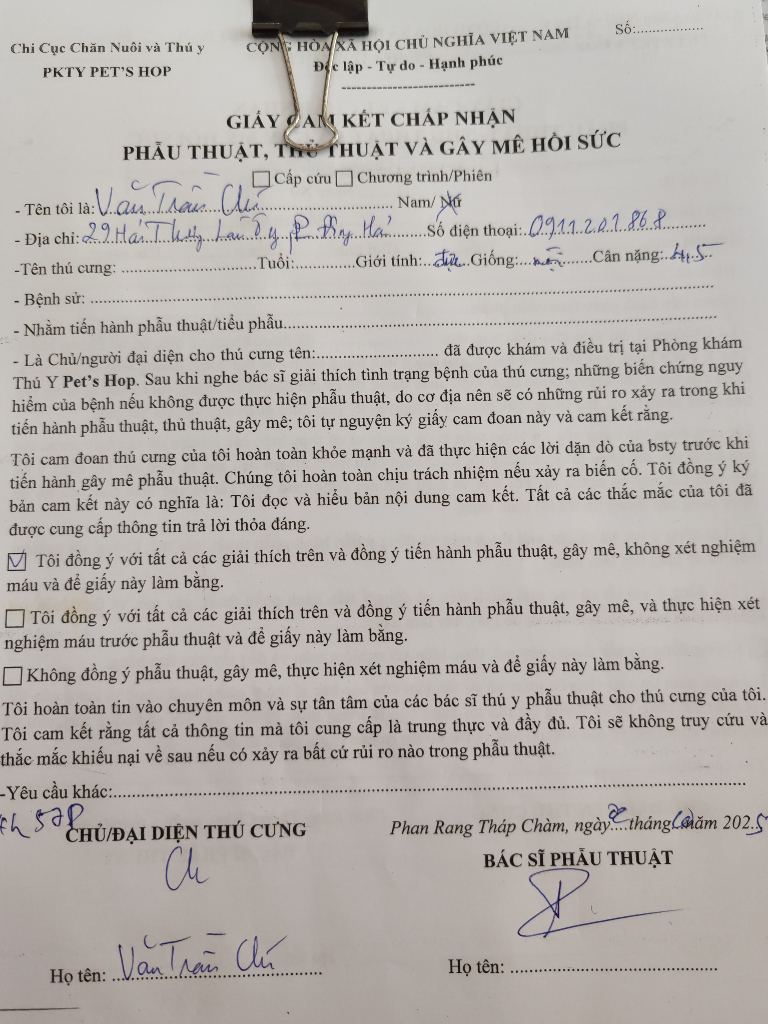 Chi Cục Chăn Nuôi và Thú y
PKTY PET'S HOP
CỘNG HÒA XÃ HỘI CHỦ NGHĨA VIỆT NAM
Độc lập - Tự do - Hạnh phúc
Số:
GIẤY CAM KẾT CHẤP NHẬN
PHẪU THUẬT, THỦ THUẬT VÀ GÂY MÊ HỒI SỨC
Cấp cứu Chương trình/Phiên
- Tên tôi là: Văn Trần Chí Nam/ Nữ
- Địa chỉ: 29 Hải Thượng Lãn Ông, P. Số điện thoại: 0911.201.868
-Tên thú cưng: Tuổi: Giới tính: đực Giống: Cân nặng: 4,5
- Bệnh sử:
- Nhằm tiến hành phẫu thuật/tiểu phẫu
- Là Chủ/người đại diện cho thú cưng tên: đã được khám và điều trị tại Phòng khám
Thú Y Pet's Hop. Sau khi nghe bác sĩ giải thích tình trạng bệnh của thú cưng; những biến chứng nguy
hiểm của bệnh nếu không được thực hiện phẫu thuật, do cơ địa nên sẽ có những rủi ro xảy ra trong khi
tiến hành phẫu thuật, thủ thuật, gây mê; tôi tự nguyện ký giấy cam đoan này và cam kết rằng.
Tôi cam đoan thú cưng của tôi hoàn toàn khỏe mạnh và đã thực hiện các lời dặn dò của bsty trước khi
tiến hành gây mê phẫu thuật. Chúng tôi hoàn toàn chịu trách nhiệm nếu xảy ra biến cố. Tôi đồng ý ký
bản cam kết này có nghĩa là: Tôi đọc và hiểu bản nội dung cam kết. Tất cả các thắc mắc của tôi đã
được cung cấp thông tin trả lời thỏa đáng.
Tôi đồng ý với tất cả các giải thích trên và đồng ý tiến hành phẫu thuật, gây mê, không xét nghiệm
máu và để giấy này làm bằng.
Tôi đồng ý với tất cả các giải thích trên và đồng ý tiến hành phẫu thuật, gây mê, và thực hiện xét
nghiệm máu trước phẫu thuật và để giấy này làm bằng.
Không đồng ý phẫu thuật, gây mê, thực hiện xét nghiệm máu và để giấy này làm bằng.
Tôi hoàn toàn tin vào chuyên môn và sự tân tâm của các bác sĩ thú y phẫu thuật cho thú cưng của tôi.
Tôi cam kết rằng tất cả thông tin mà tôi cung cấp là trung thực và đầy đủ. Tôi sẽ không truy cứu và
thắc mắc khiếu nại về sau nếu có xảy ra bất cứ rủi ro nào trong phẫu thuật.
-Yêu cầu khác:
CHỦ/ĐẠI DIỆN THÚ CƯNG
Phan Rang Tháp Chàm, ngày tháng năm 2025
BÁC SĨ PHẪU THUẬT
Họ tên: Văn Trần Chí
Họ tên: